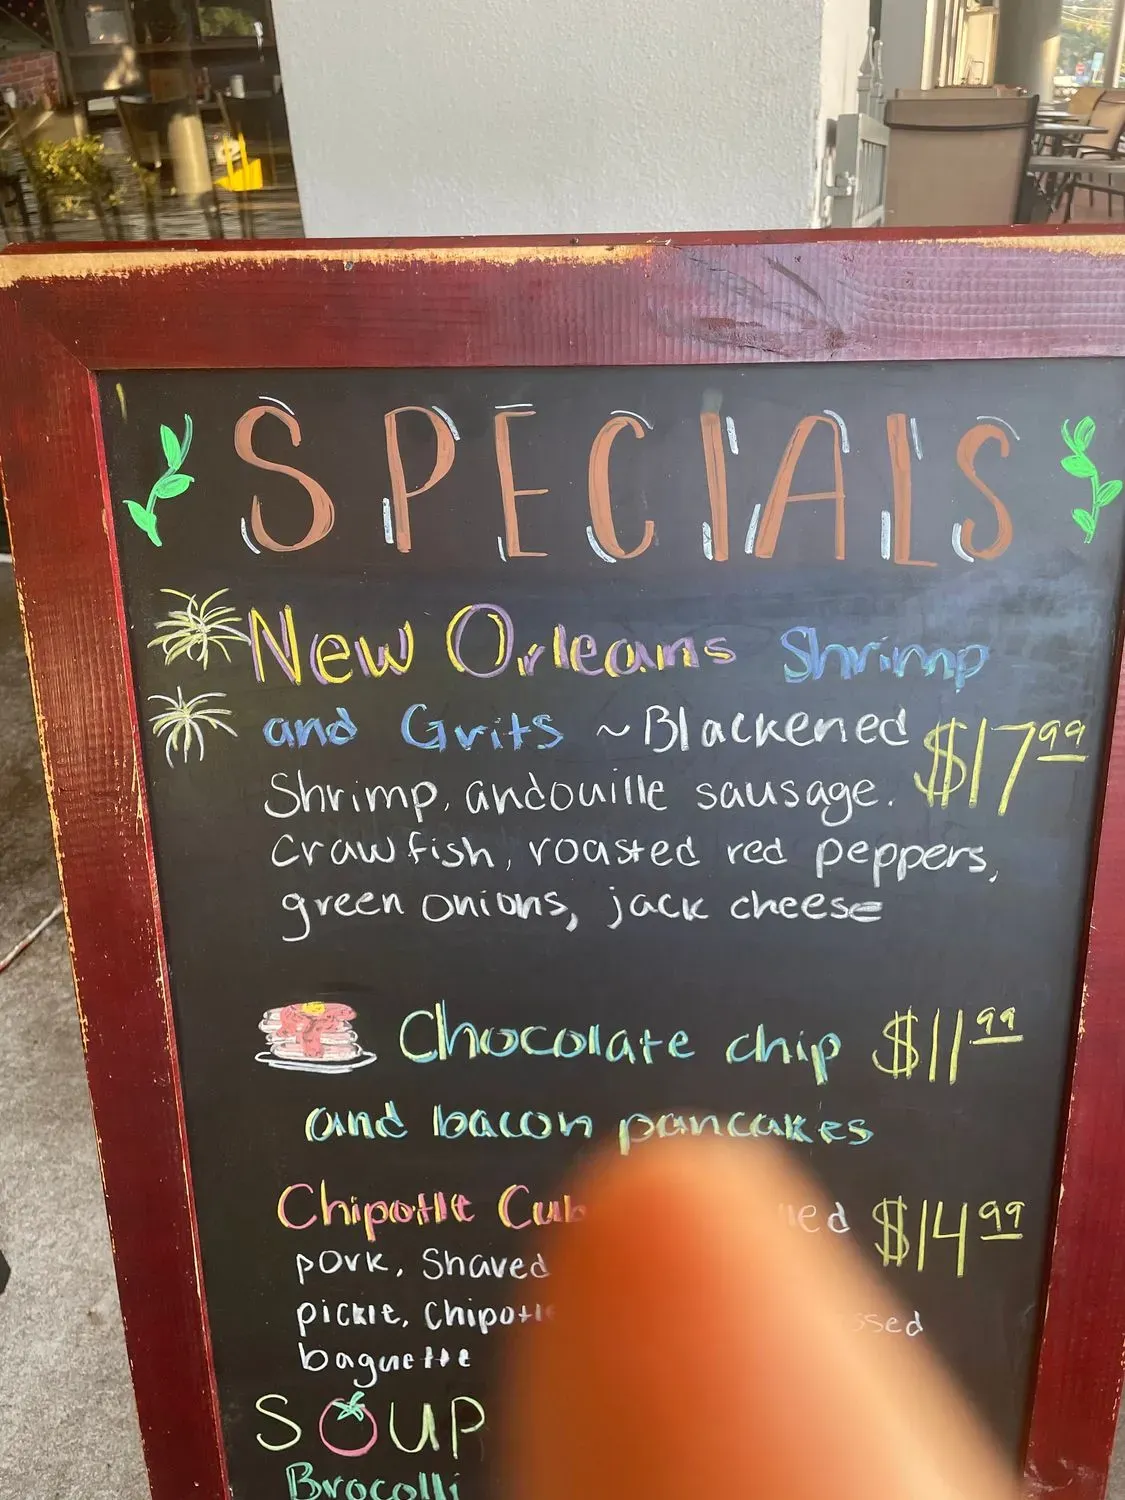 SPECIALS
New Orleans Shrimp
and Grits ~Blackened $17.99
Shrimp, andouille sausage.
crawfish, roasted red peppers,
green onions, jack cheese
Chocolate chip $11.99
and bacon pancakes
Chipotle $14.99
pork, Shaved
pickle,
baguette
SOUP
Brocolli